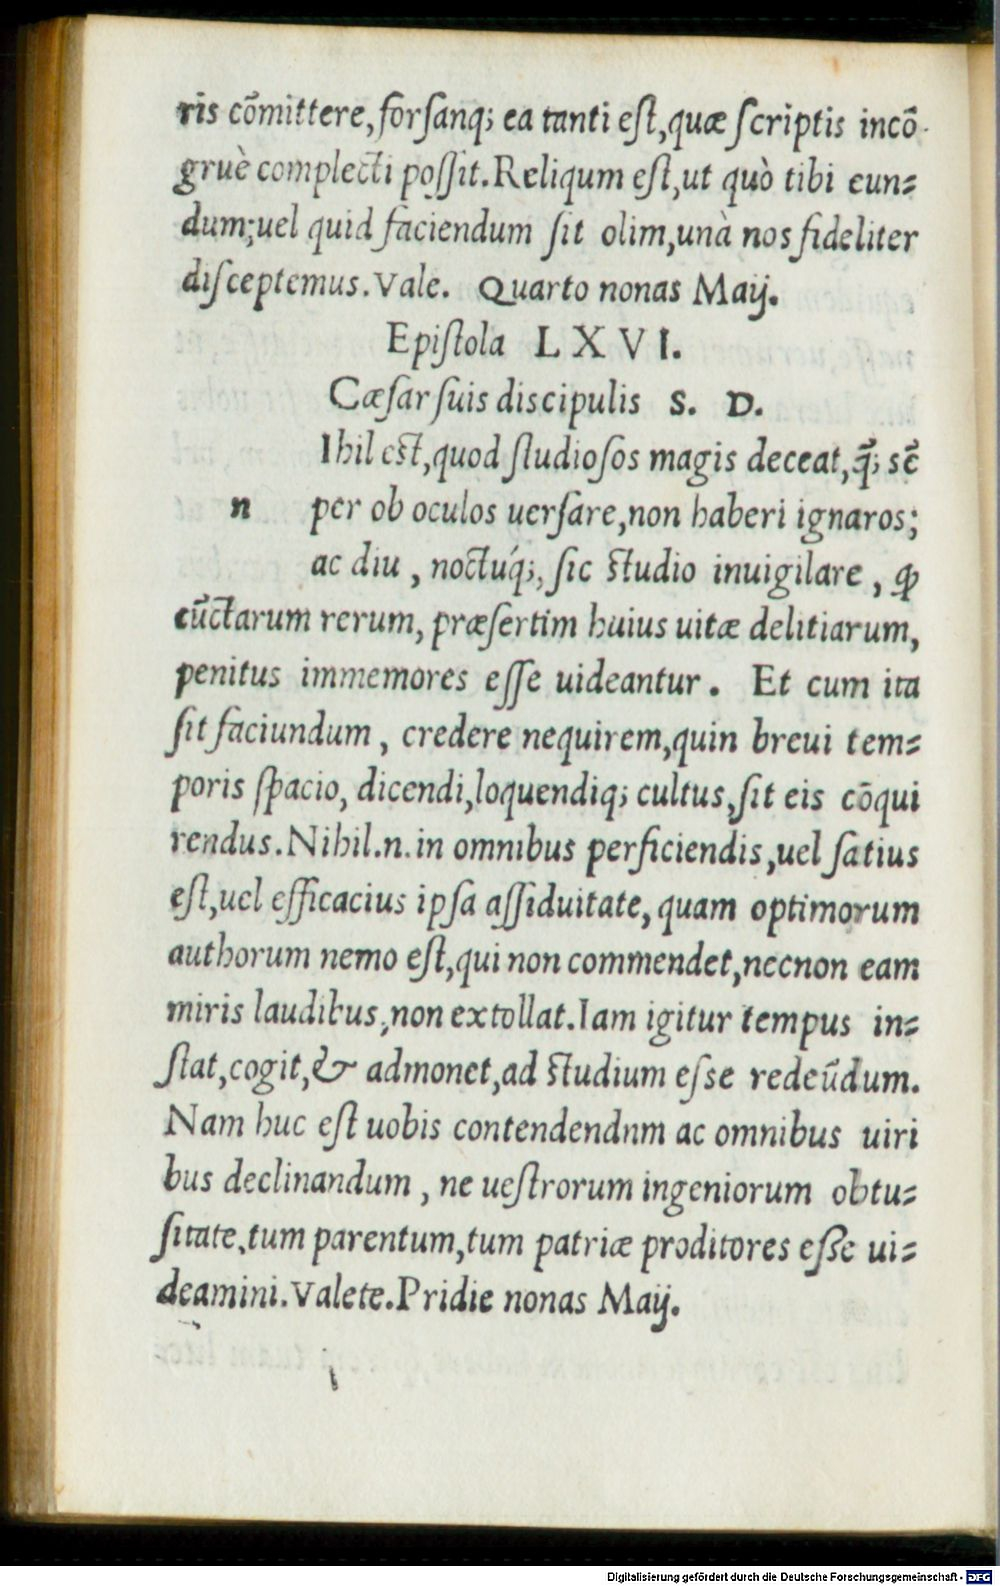 ris cōmittere, forſanq; ea tanti eſt, quæ ſcriptis incō-
gruè complecti poſſit. Reliqum eſt, ut quò tibi eun=
dum; uel quid faciendum ſit olim, unà nos fideliter
diſceptemus. Vale. Quarto nonas Maij.
Epiſtola L X V I.
Cæſar ſuis discipulis S. D.
Ihil eſt, quod ſtudioſos magis deceat, q̄; sē
n per ob oculos uerſare, non haberi ignaros;
ac diu, noctuq́;, ſic ſtudio inuigilare, ꝙ
cūctarum rerum, præſertim huius uitæ delitiarum,
penitus immemores eſſe uideantur. Et cum ita
ſit faciundum, credere nequirem, quin breui tem=
poris ſpacio, dicendi, loquendiq; cultus, ſit eis cōqui
rendus. Nihil .n. in omnibus perficiendis, uel ſatius
eſt, uel efficacius ipſa aſſiduitate, quam optimorum
authorum nemo eſt, qui non commendet, necnon eam
miris laudibus, non extollat. Iam igitur tempus in=
ſtat, cogit, & admonet, ad ſtudium eſse redeūdum.
Nam huc eſt uobis contendendnm ac omnibus uiri
bus declinandum, ne ueſtrorum ingeniorum obtu=
ſitate, tum parentum, tum patriæ proditores eſse ui=
deamini. Valete. Pridie nonas Maij.
Digitalisierung gefördert durch die Deutsche Forschungsgemeinschaft - DFG